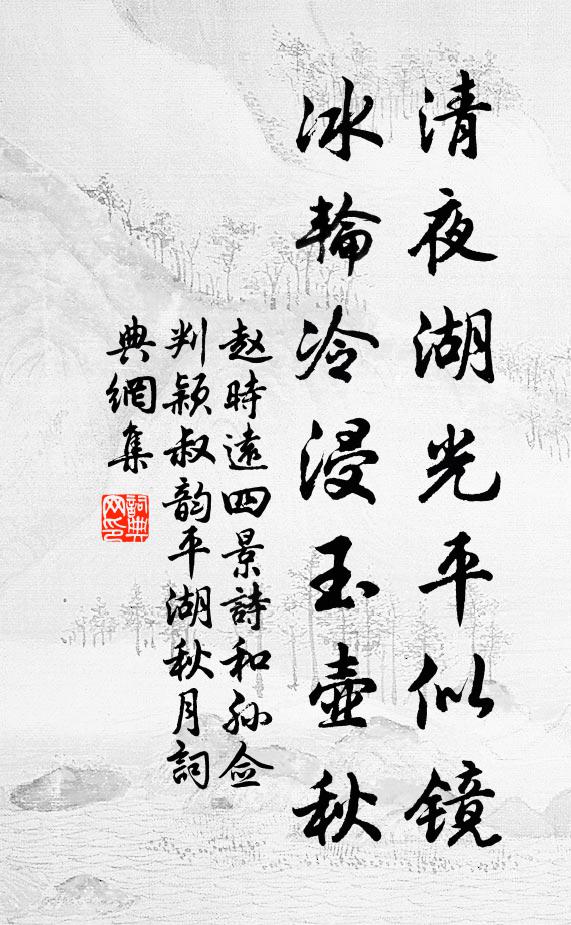 清夜湖光平似镜
冰輪冷浸玉壺秋
赵時遠四景詩和孙佥
判颖叔韵平湖秋月詞
典網集
詞典
网印